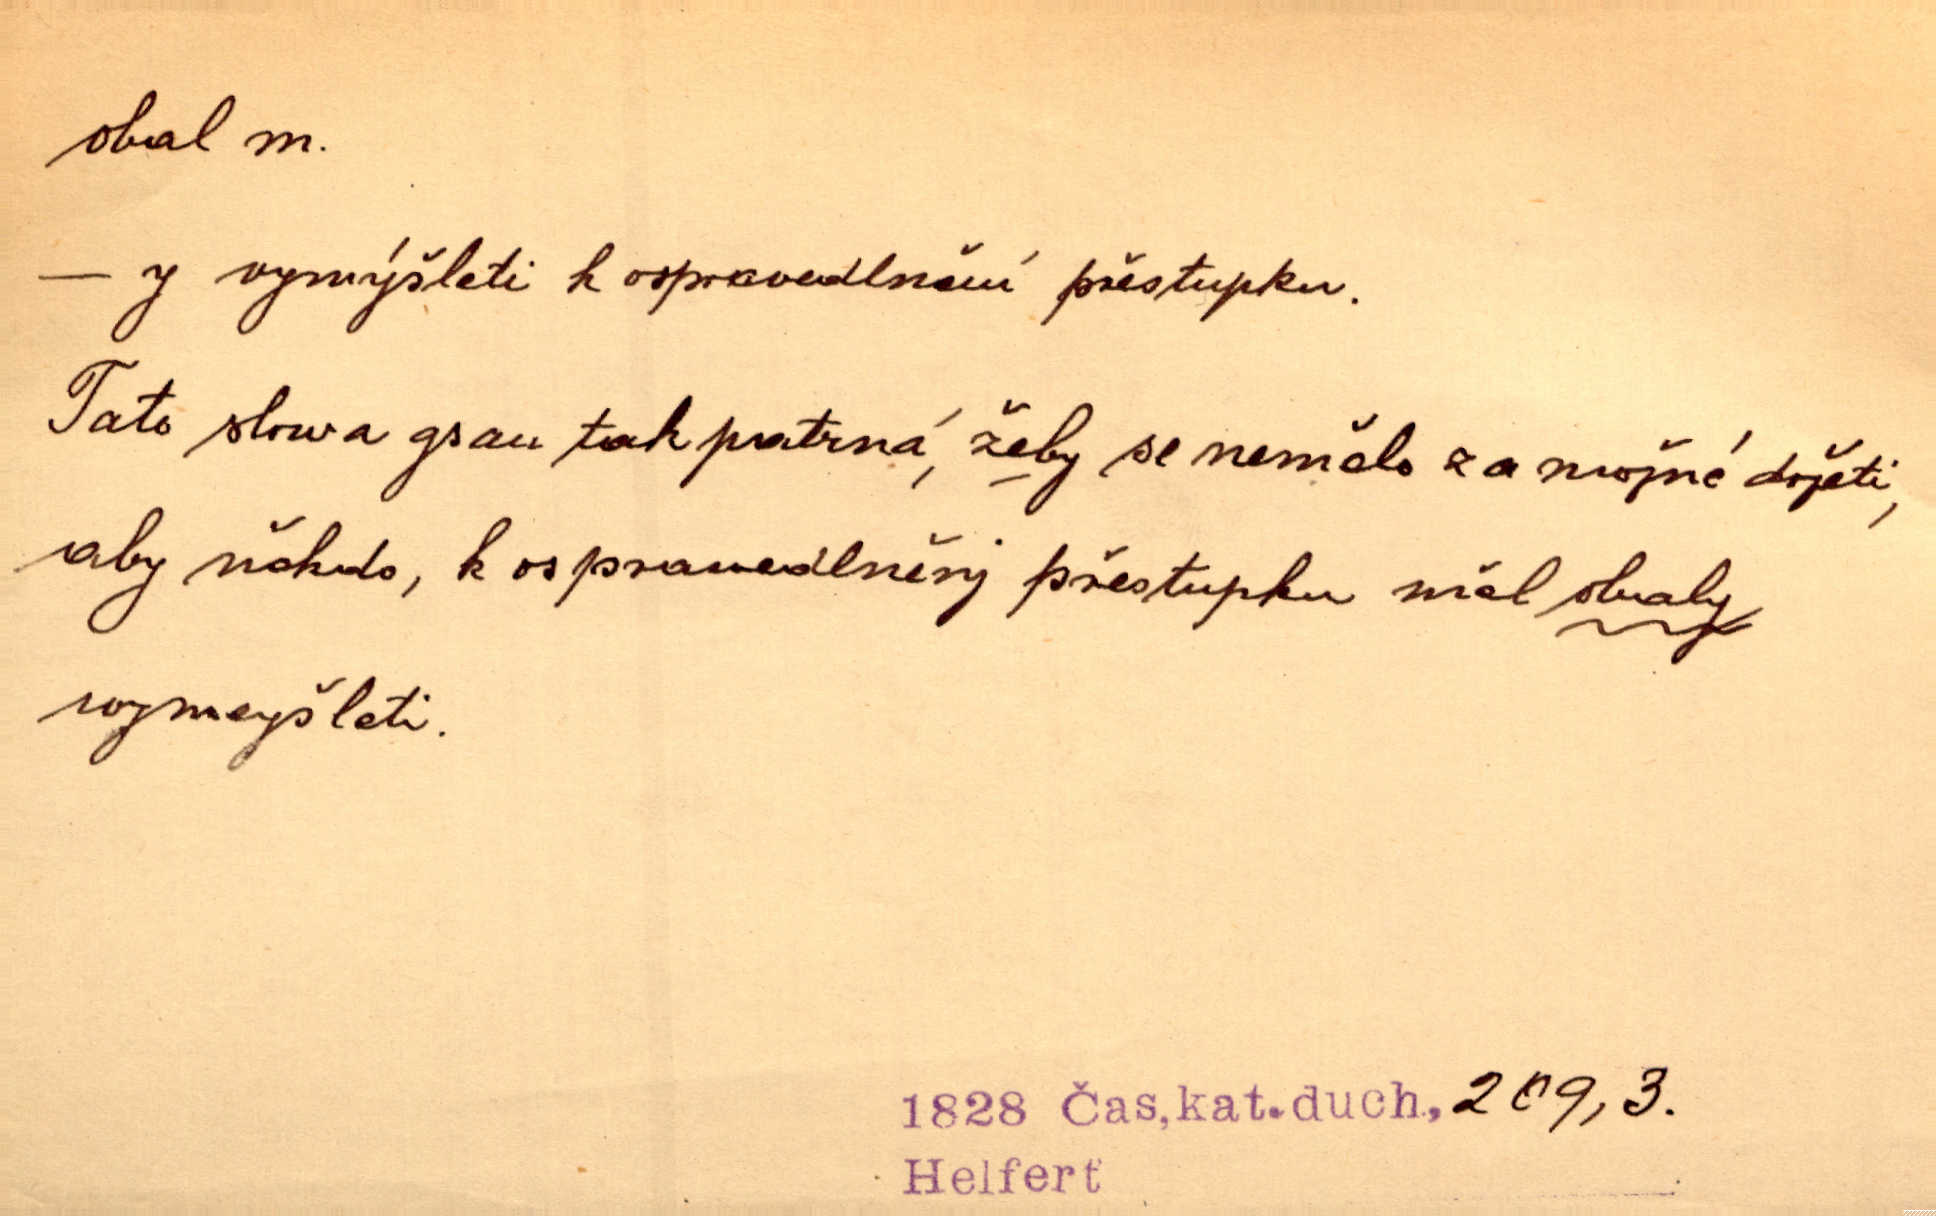 obal m.
— y vymýšleti k ospravedlnění přestupku.
Tato slowa gsau tak patrná, žeby se nemělo za možné držeti,
aby někdo, k osprawedlněnj přestupku měl obaly
wymeyšleti.
1828 Čas.kat.duch., 209, 3.
Helfert